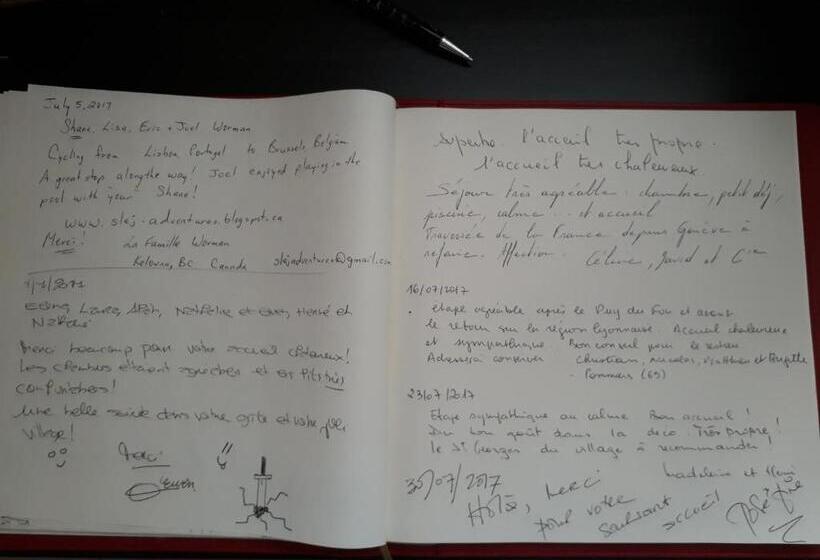 July 5, 2017
Shane, Lisa, Eric + Joel Worman
Cycling from Lisbon, Portugal to Brussels, Belgium
A great stop along the way! Joel enjoyed playing in the
pool with your Shane!
www.slej-adventures.blogspot.ca
Merci! La Famille Worman
Kelowna, BC Canada slejadventures@gmail.com
Nathalie et Hervé et
Merci beaucoup pour votre accueil chaleureux!
Les chambres étaient et
Une belle soirée dans votre gîte et votre joli
village!
Merci
Ewen
Superbe. l'accueil très propre.
l'accueil très chaleureux
Séjour très agréable: chambre, petit déj,
piscine, calme... et accueil
Traversée de la France depuis Genève à
refaire. Affection. Céline, David et Cie
16/07/2017
. Etape agréable après le Puy du Fou et avant
le retour sur la région lyonnaise. Accueil chaleureux
et sympathique. Bon conseil pour le
Adresse à conserver Christian, Nicolas, Matthieu et Brigitte
- Pommiers (69)
23/07/2017
Etape sympathique au calme Bon accueil!
Du bon goût dans la déco. Très propre!
le St Georges du village à recommander!
Madeleine et
30/07/2017
merci
pour votre
accueil
Joséphine